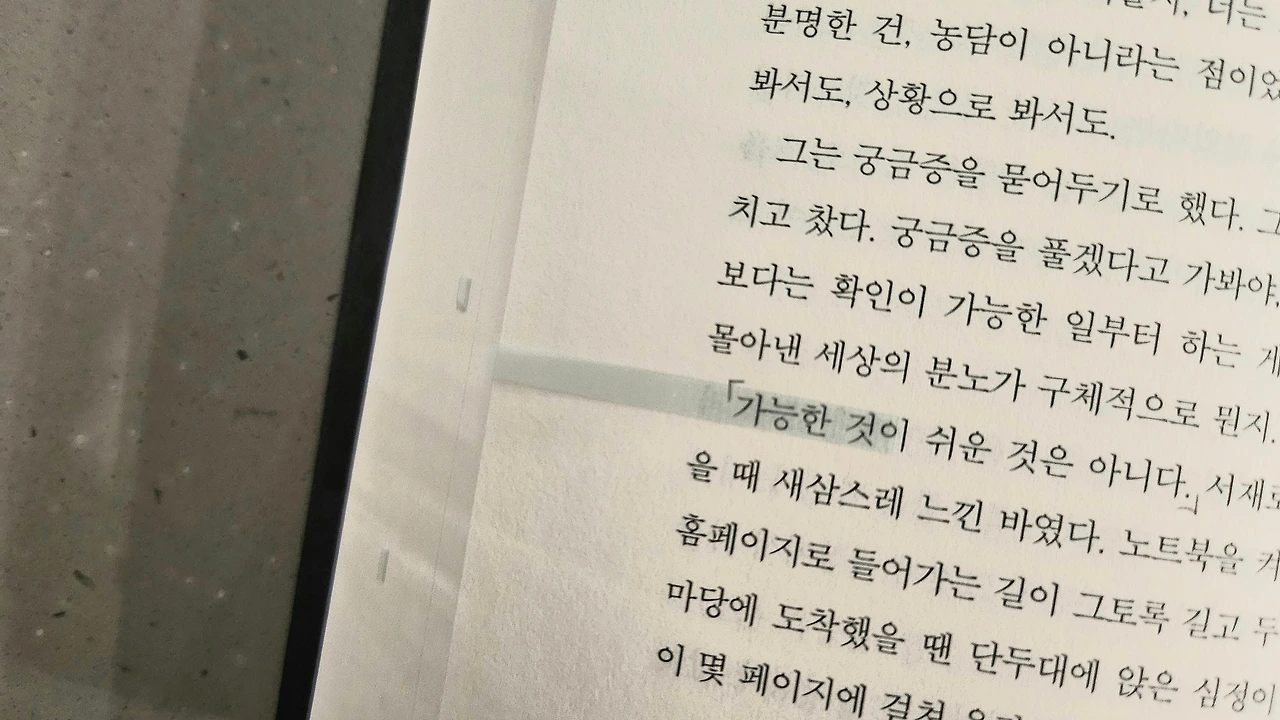 너는
분명한 건, 농담이 아니라는 점이었
봐서도, 상황으로 봐서도.
그는 궁금증을 묻어두기로 했다. 그
치고 찼다. 궁금증을 풀겠다고 가봐야,
보다는 확인이 가능한 일부터 하는 게
몰아낸 세상의 분노가 구체적으로 뭔지.
「가능한 것이 쉬운 것은 아니다.」 서재로
을 때 새삼스레 느낀 바였다. 노트북을 켜
홈페이지로 들어가는 길이 그토록 길고 두
마당에 도착했을 땐 단두대에 앉은 심정이
이 몇 페이지에 걸쳐